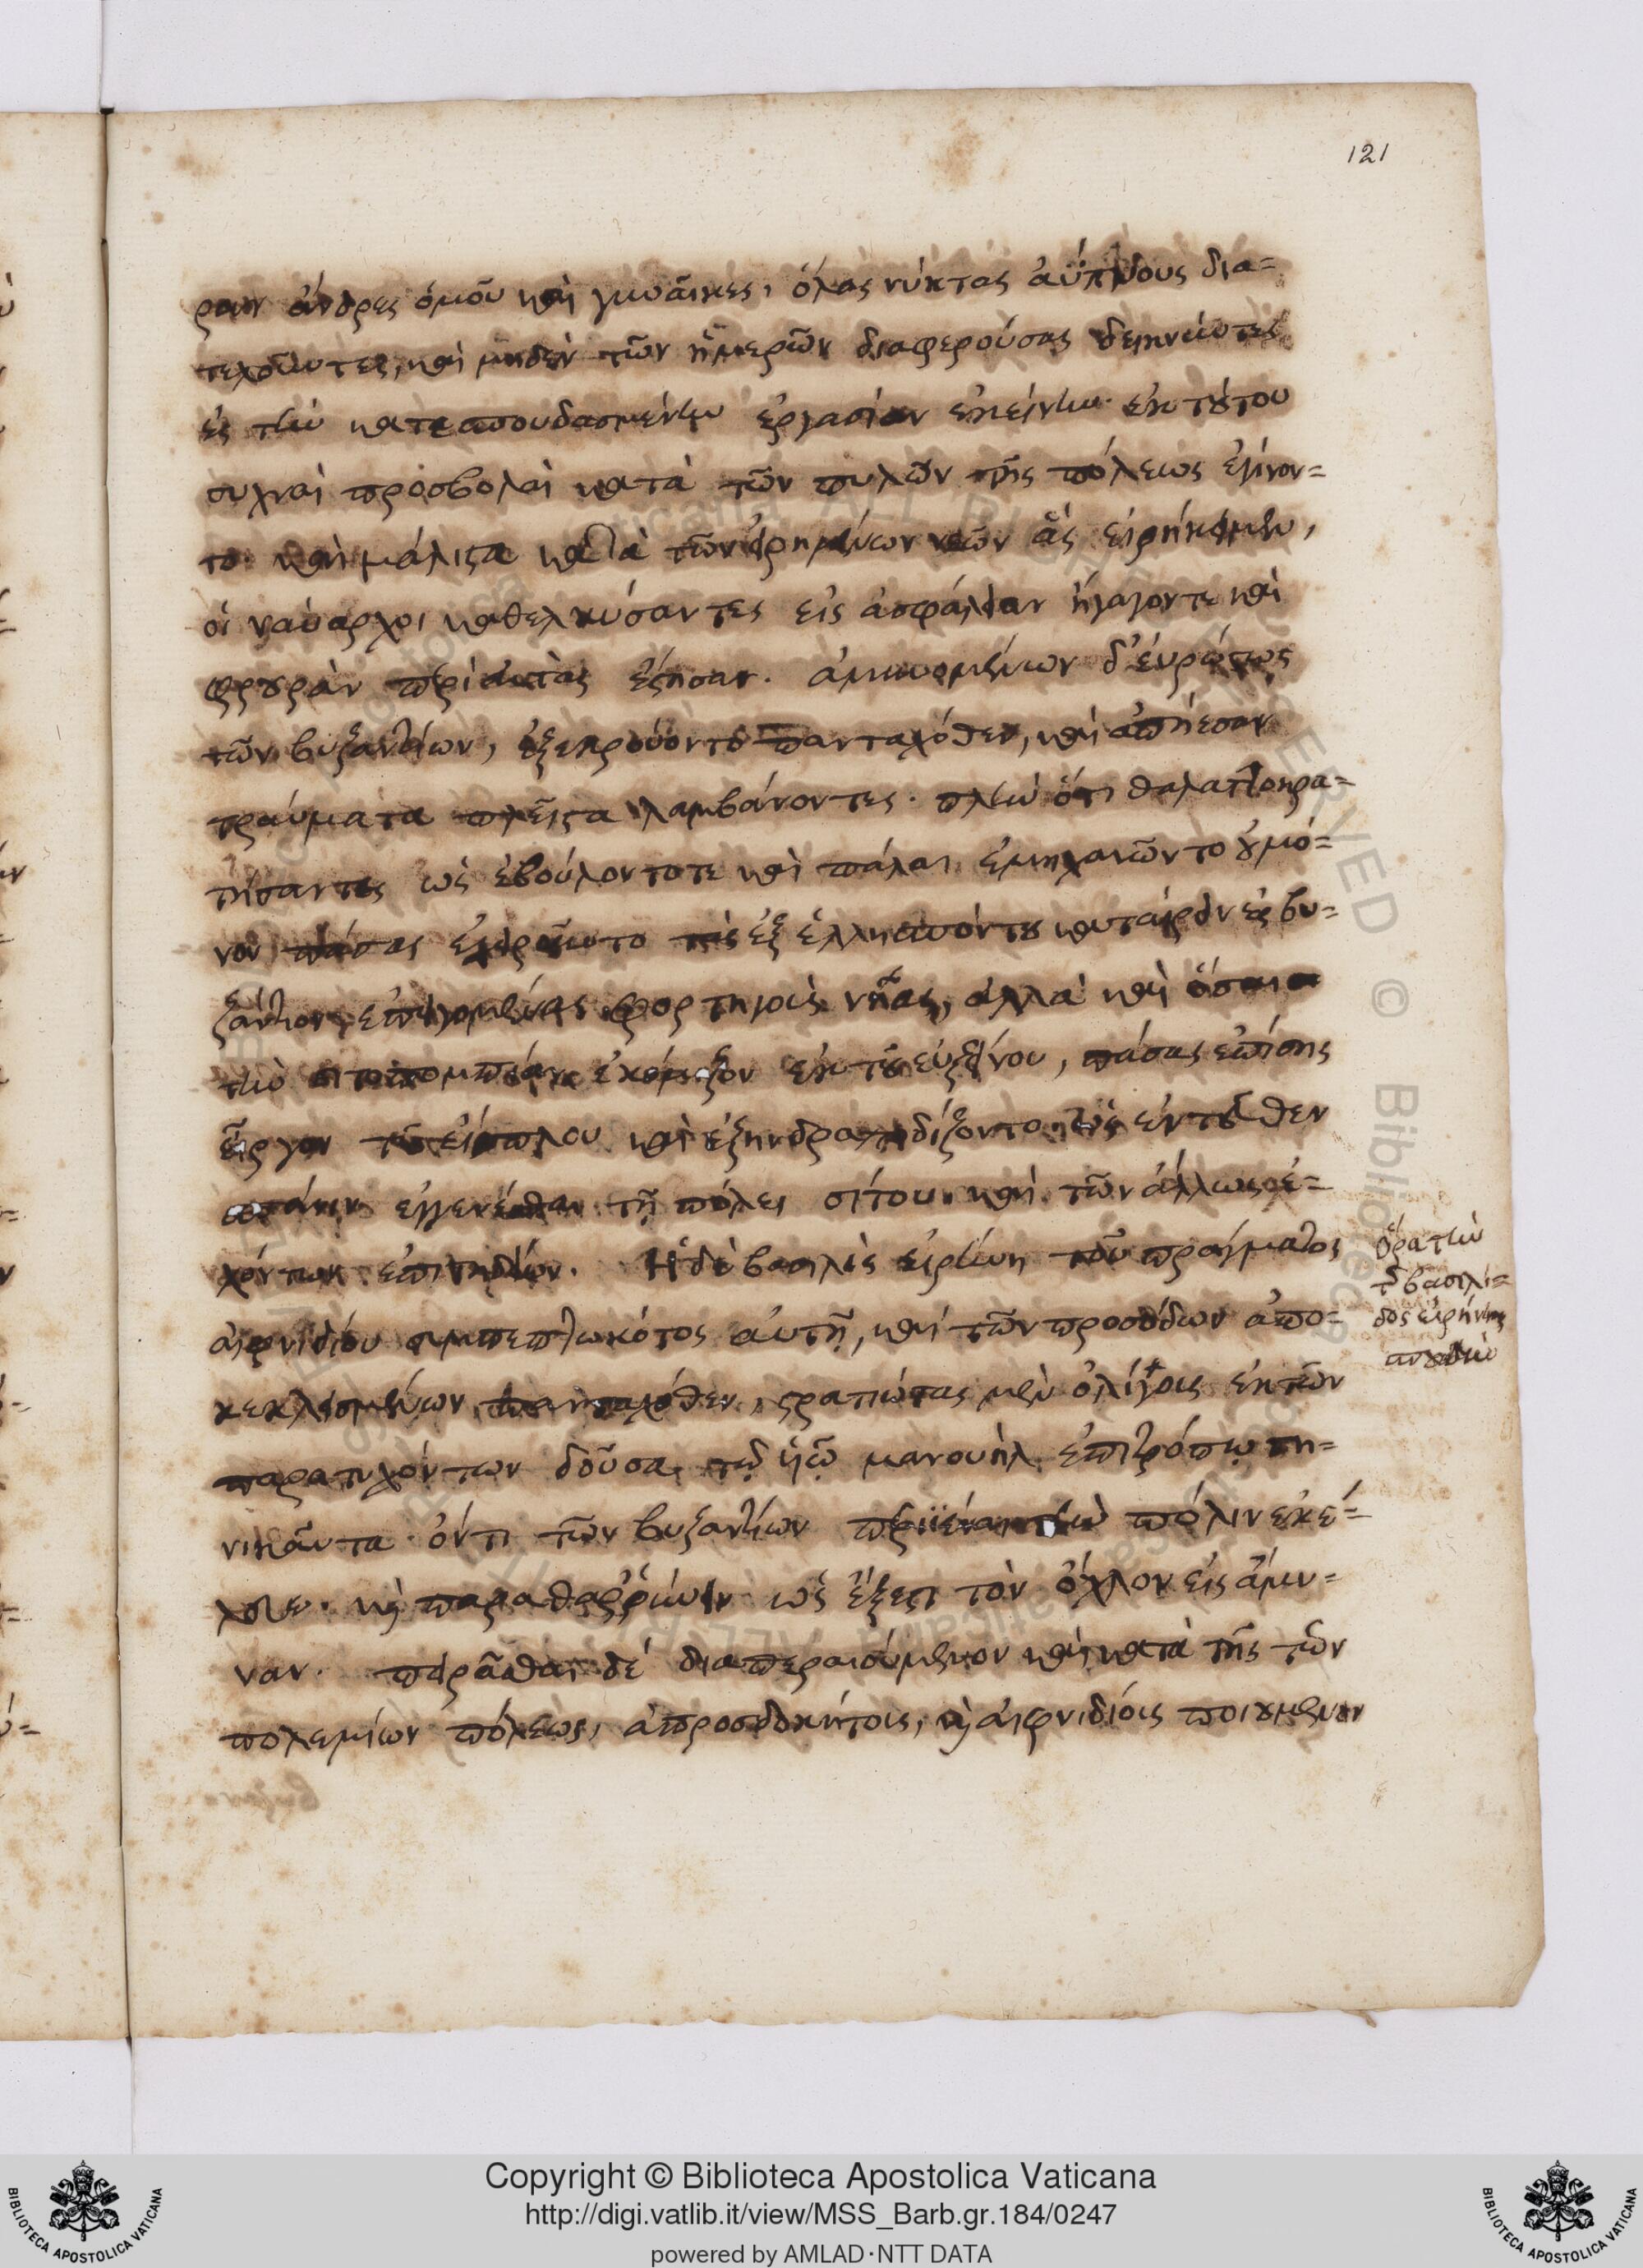 121
ραν ἄνδρες ὁμοῦ καὶ γυναῖκες, ὅλας νύκτας ἀΰπνους δια=
τελοῦντες, καὶ μηδὲν τῶν ἡμερῶν διαφερούσας δεικνύντες
ἐς τὴν κατεσπουδασμένην ἐργασίαν ἐκείνην. ἐκ τούτου
συχναὶ προσβολαὶ κατὰ τῶν πυλῶν τῆς πόλεως ἐγίνον=
το καὶ μάλιστα κατὰ τῶν εἰρημένων νεῶν ἃς εἰρήκειμεν,
οἱ ναύαρχοι καθελκύσαντες εἰς ἀσφάλειαν ἤγαγον τε καὶ
φρουρὰν περὶ αὐτὰς ἔστησαν. ἀμυνομένων δ' εὐρώστως
τῶν βυζαντίων, ἐξεκρούοντο πανταχόθεν, καὶ ἀπῄεσαν
τραύματα πλεῖστα λαμβάνοντες. πλὴν ὅτι θαλαττοκρα=
τήσαντες ὡς ἐβούλοντο τε καὶ πάλαι ἐμηχανῶντο οὐ μό=
νον πάσας ἐχειρῶντο τὰς ἐξ ἑλλησπόντου κᾀνταῦθεν ἐς βυ=
ζάντιον φορτηγοὺς νῆας, ἀλλὰ καὶ ὅσαι
τὴν σιτοπομπείαν ἐκόμιζον ἐκ τοῦ εὐξείνου, πάσας ἐπίσης
εἶργον τοῦ εἴσπλου καὶ ἐξηνδραποδίζοντο, ὡς ἐντεῦθεν
σπάνιν ἐγγενέσθαι τῇ πόλει σίτου καὶ τῶν ἄλλως ἐ=
χόντων ἐπιτηδείων. Ἡ δὲ βασιλὶς εἰρήνη τοῦ πράγματος
αἰφνιδίου συμπεπτωκότος αὐτῇ, καὶ τῶν προσόδων ἀπο=
κεκλεισμένων πανταχόθεν, στρατιώτας μὲν ὀλίγους ἐκ τῶν
παρατυχόντων δοῦσα τῷ υἱῷ μανουὴλ ἐπιτρόπῳ τη=
νικαῦτα ὄντι τῶν βυζαντίων περιϊέναι τὴν πόλιν ἐκέ=
λευε. καὶ παραθαῤῥύνειν ὡς ἔξεστι τὸν ὄχλον εἰς ἄμυ=
ναν. πειρᾶσθαι δὲ διαπεραιούμενον καὶ κατὰ τῆς τῶν
πολεμίων πόλεως, ἀπροσδοκήτοις, καὶ αἰφνιδίοις ποιούμενον
ὅρα τὴν
τῆς βασιλί=
δος εἰρήνης
σπουδὴν
Copyright © Biblioteca Apostolica Vaticana
http://digi.vatlib.it/view/MSS_Barb.gr.184/0247
powered by AMLAD·NTT DATA
BIBLIOTECA APOSTOLICA VATICANA
BIBLIOTECA APOSTOLICA VATICANA